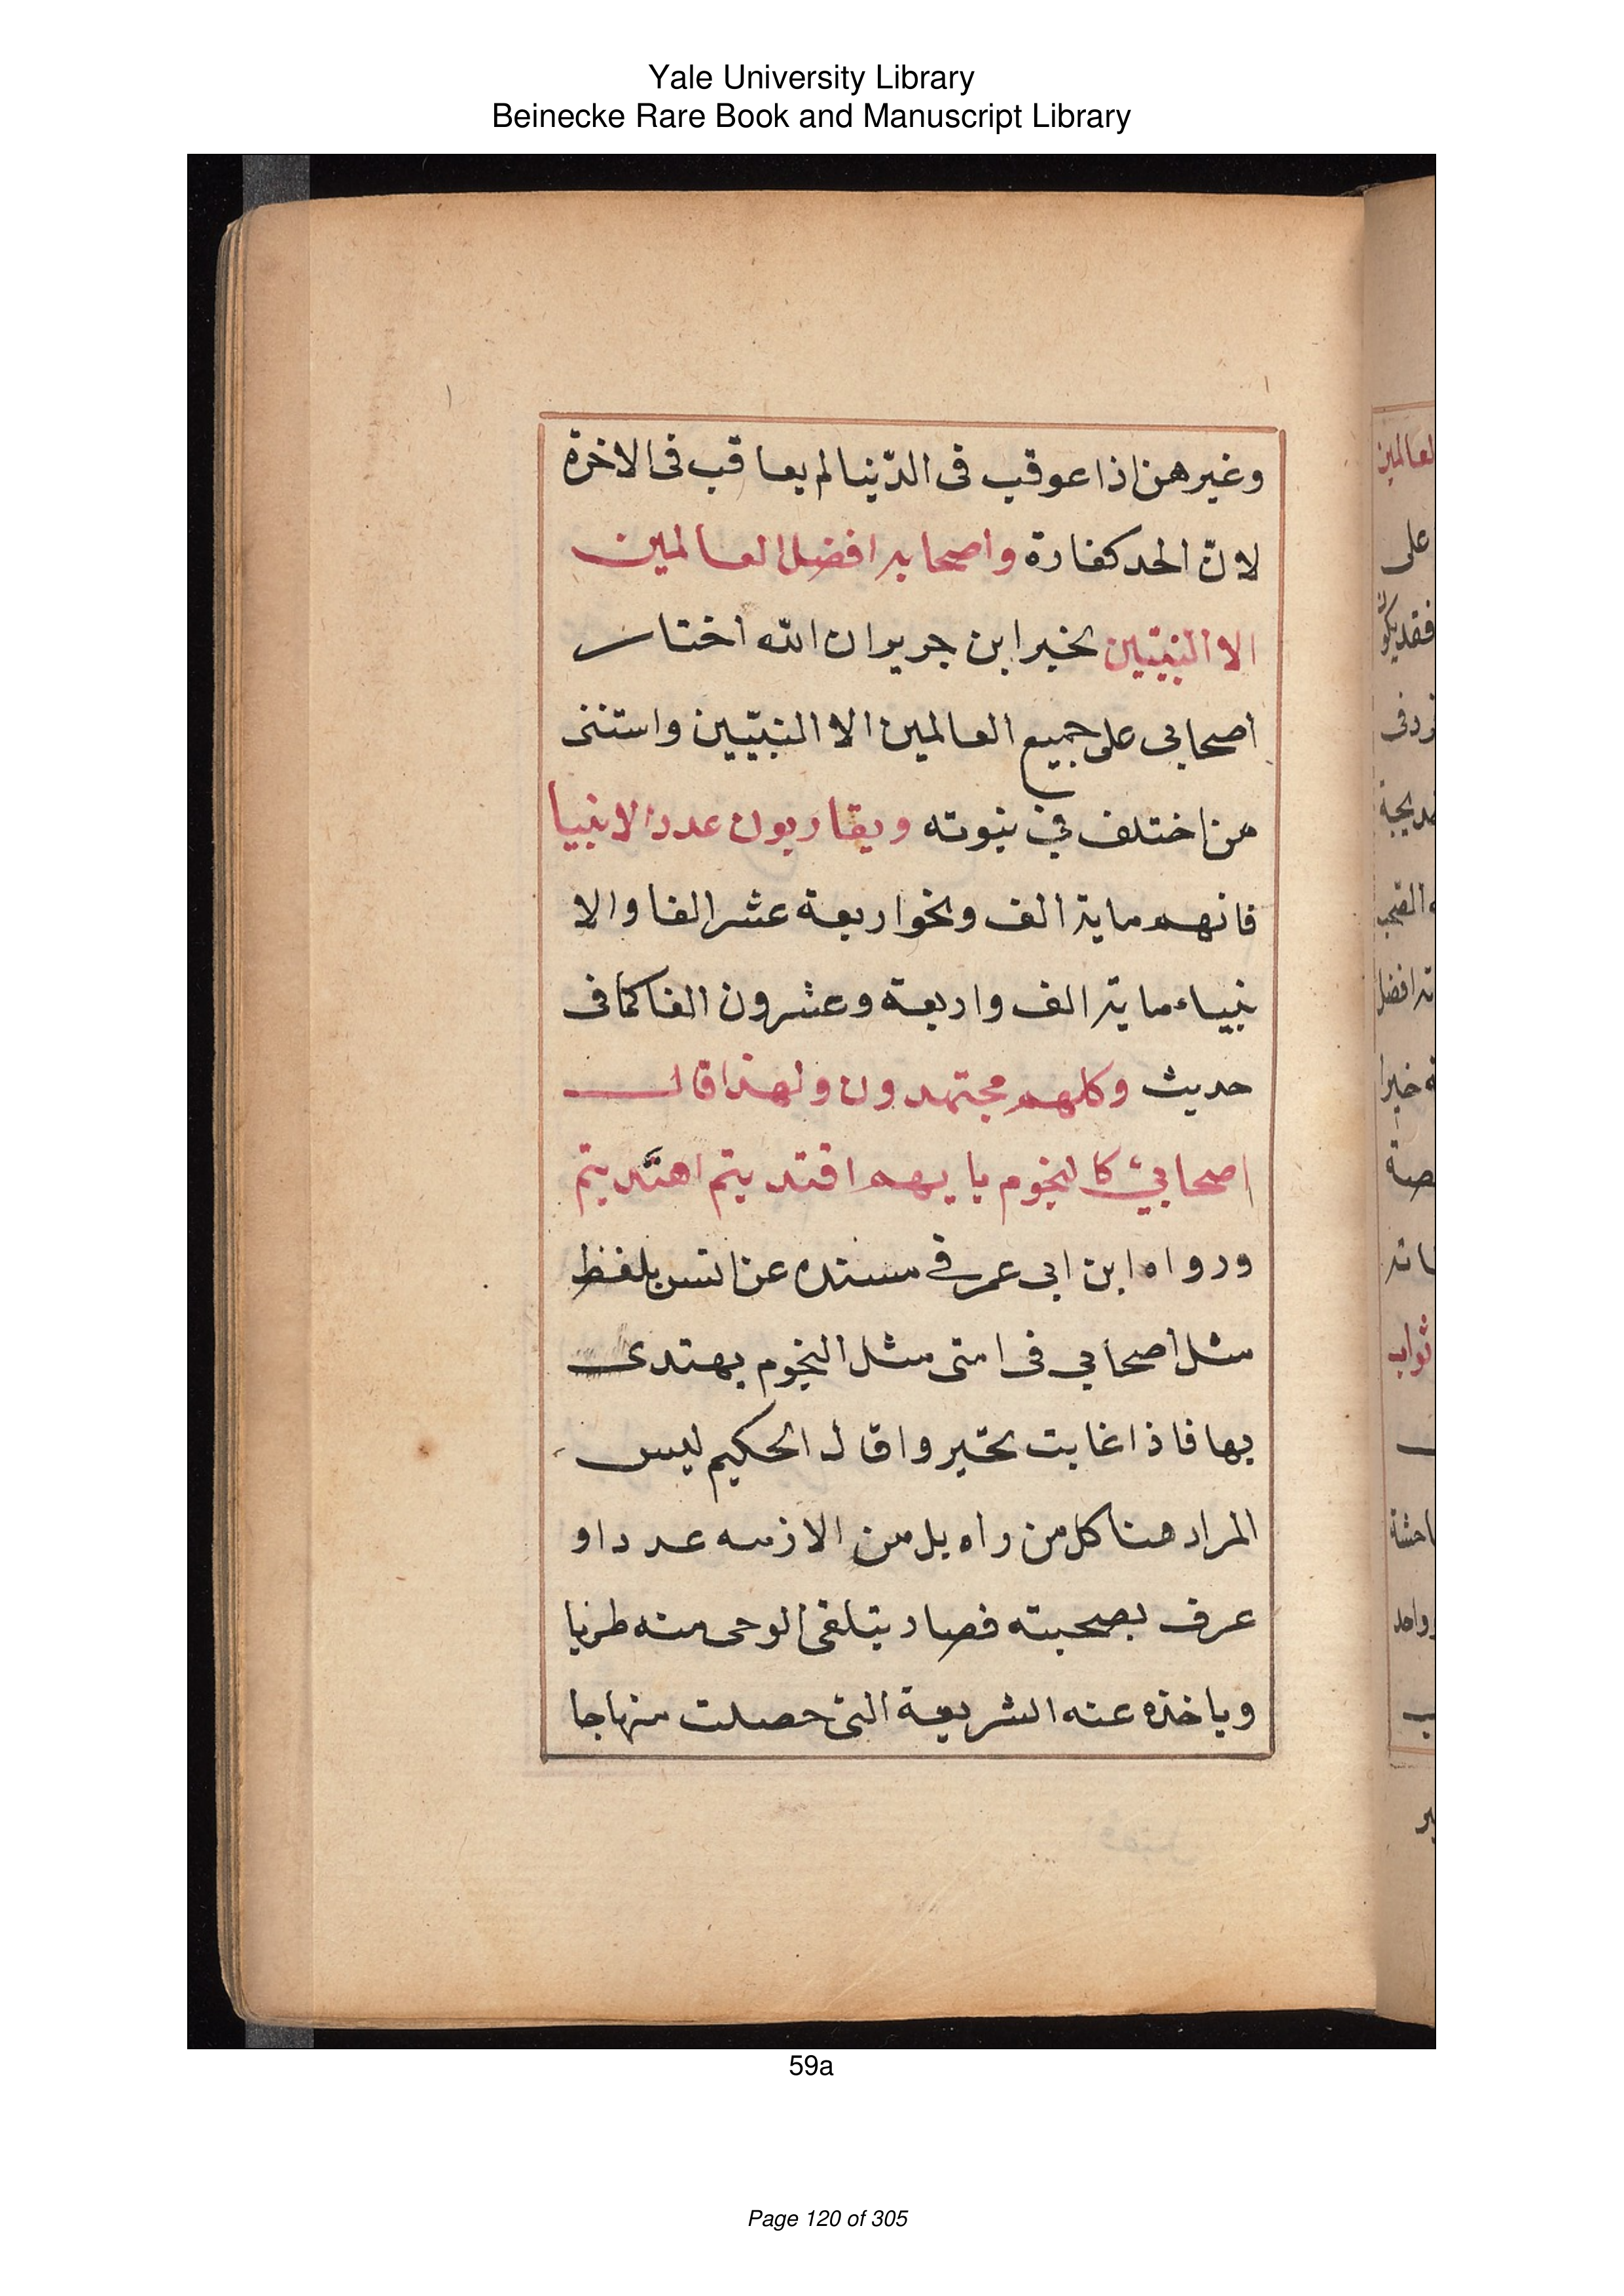 Yale University Library
Beinecke Rare Book and Manuscript Library
وغيرهن اذا عوقب فى الدّنيا لم يعاقب فى الاخرة
لانّ الحد كفارة واصحابه افضل العالمين
الا النبيّين بخبر ابن جرير ان الله اختار
اصحابى على جميع العالمين الا النبيّين واستثنى
من اختلف في نبوته ويقاربون عدد الانبيا
فانهم ماية الف ونحو اربعة عشر الفا والا
نبياء ماية الف واربعة وعشرون الفا كما فى
حديث وكلهم مجتهدون ولهذا قال
اصحابي كالنجوم بايهم اقتديتم اهتديتم
ورواه ابن ابى عمر في مسنده عن انس بلفظ
مثل اصحابي فى امتى مثل النجوم يهتدى
بها فاذا غابت تحيروا قال الحكيم ليس
المراد هنا كل من راه بل من الازمه عددا و
عرف بصحبته فصار يتلقى الوحى منه طريا
وياخذه عنه الشريعة التى حصلت منهاجا
59a
Page 120 of 305